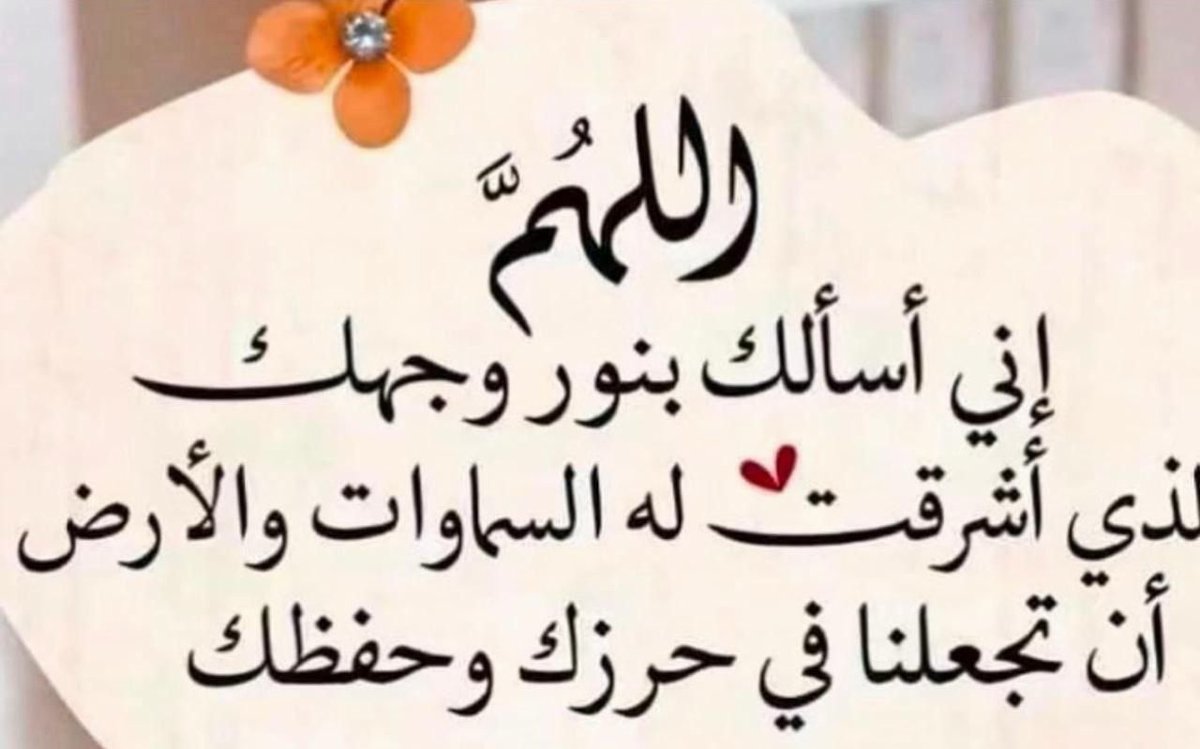 اللهُمَّ
إني أسألك بنور وجهك
لذي أشرقت له السماوات والأرض
أن تجعلنا في حرزك وحفظك